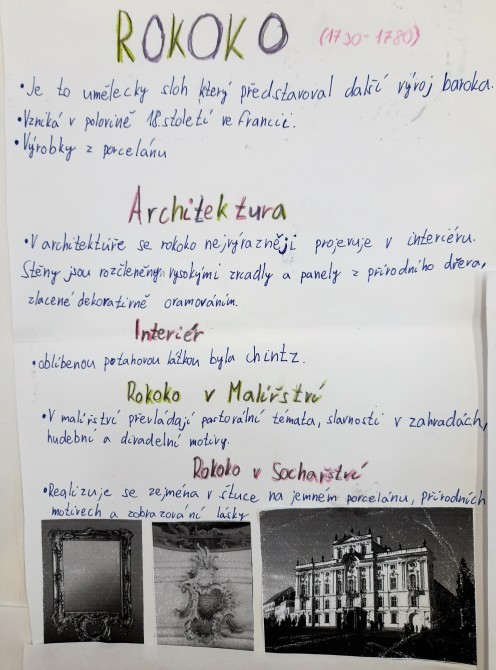 ROKOKO (1730-1780)
• Je to umělecky sloh který představoval další vývoj baroka.
• Vzniká v polovině 18.století ve Francii.
• Výrobky z porcelánu
Architektura
• V architektuře se rokoko nejvýrazněji projevuje v interiéru.
Stěny jsou rozčleněny vysokými zrcadly a panely z přírodního dřeva,
zlacené dekorativně oramováním.
Interiér
• oblíbenou potahovou látkou byla chintz.
Rokoko v Malířství
• V malířství převládají pastorální témata, slavnosti v zahradách,
hudební a divadelní motivy.
Rokoko v Sochařství
• Realizuje se zejména v štuce na jemném porcelánu, přírodních
motivech a zobrazování lásky